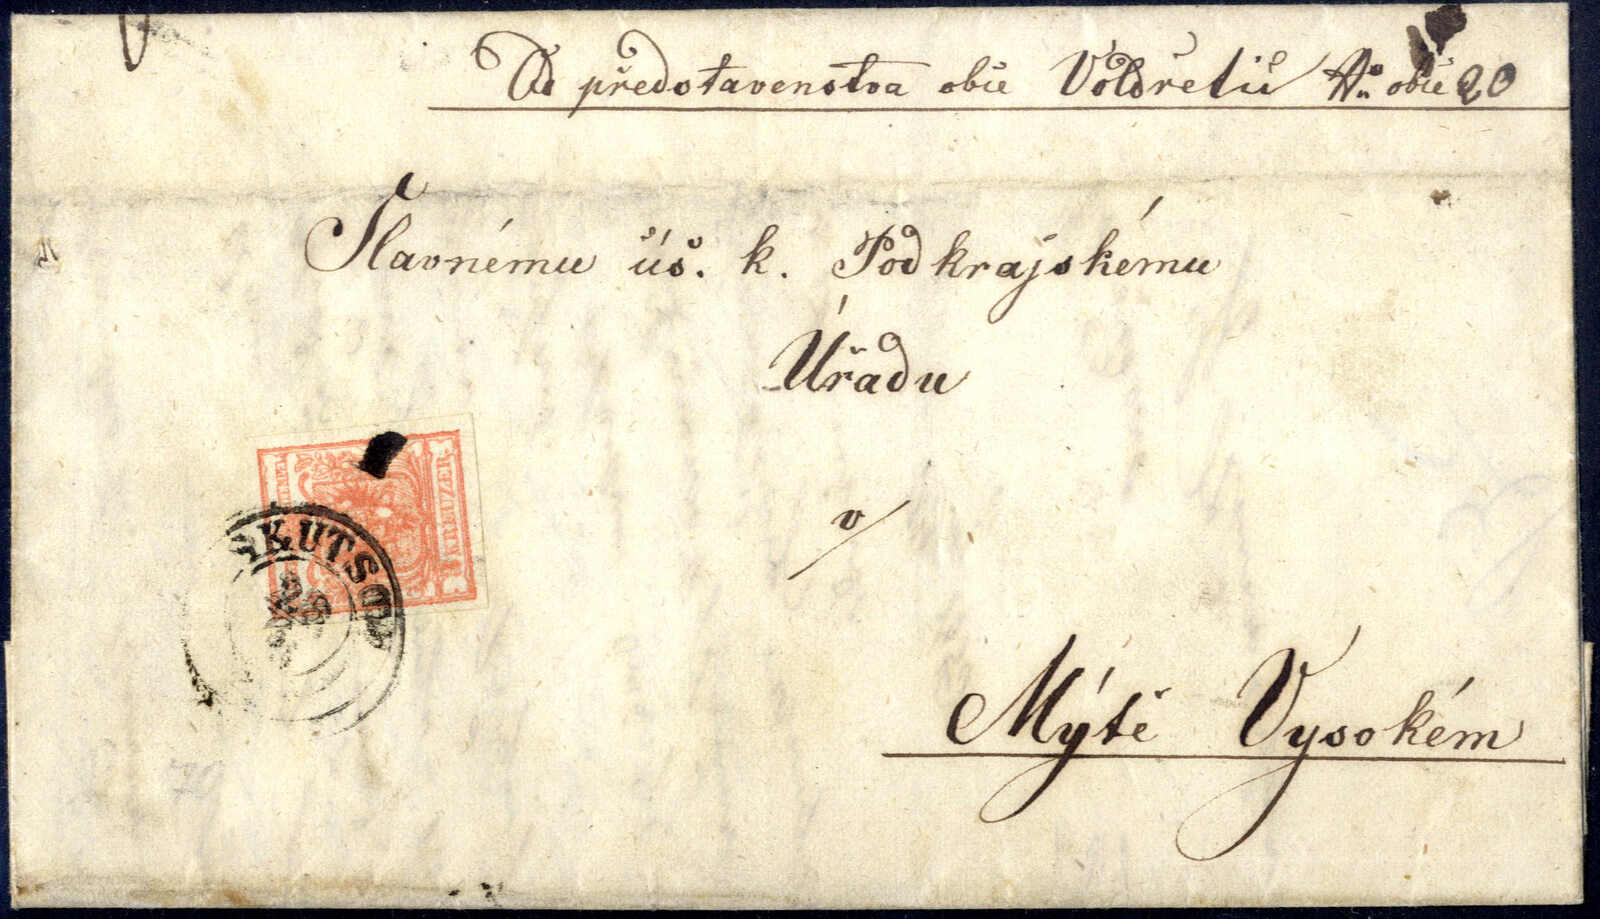 Od představenstva obce Voldřetiř No obce 20
Slavnému cís. k. Podkrajskému
Úřadu
v
Mýtě Vysokém
KREUZER
SKUTSCH
28